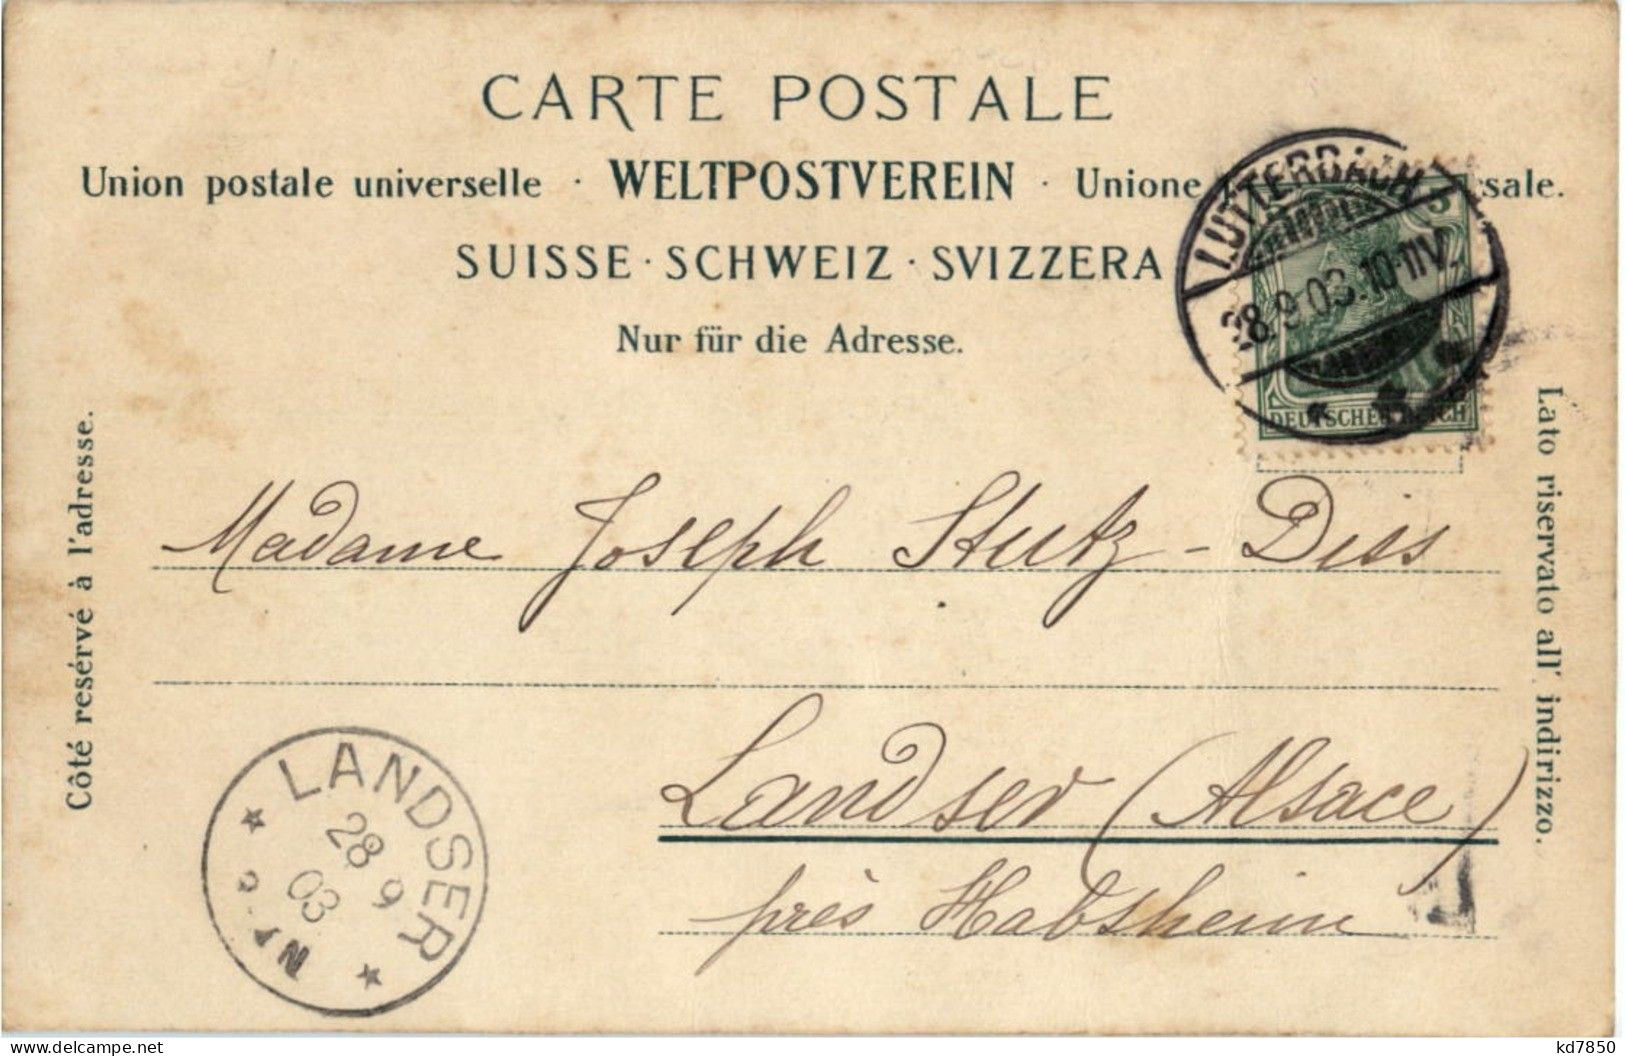 CARTE POSTALE
Union postale universelle · WELTPOSTVEREIN · Unione sale.
SUISSE · SCHWEIZ · SVIZZERA
Nur für die Adresse.
LUTTERBACH
28.9.03.10-11V.
5
DEUTSCHES REICH
Côté resérvé à l'adresse.
Lato riservato all' indirizzo.
Madame Joseph Stutz - Diss
Landser (Alsace)
près Habsheim
LANDSER
28 9
03
delcampe.net
kd7850